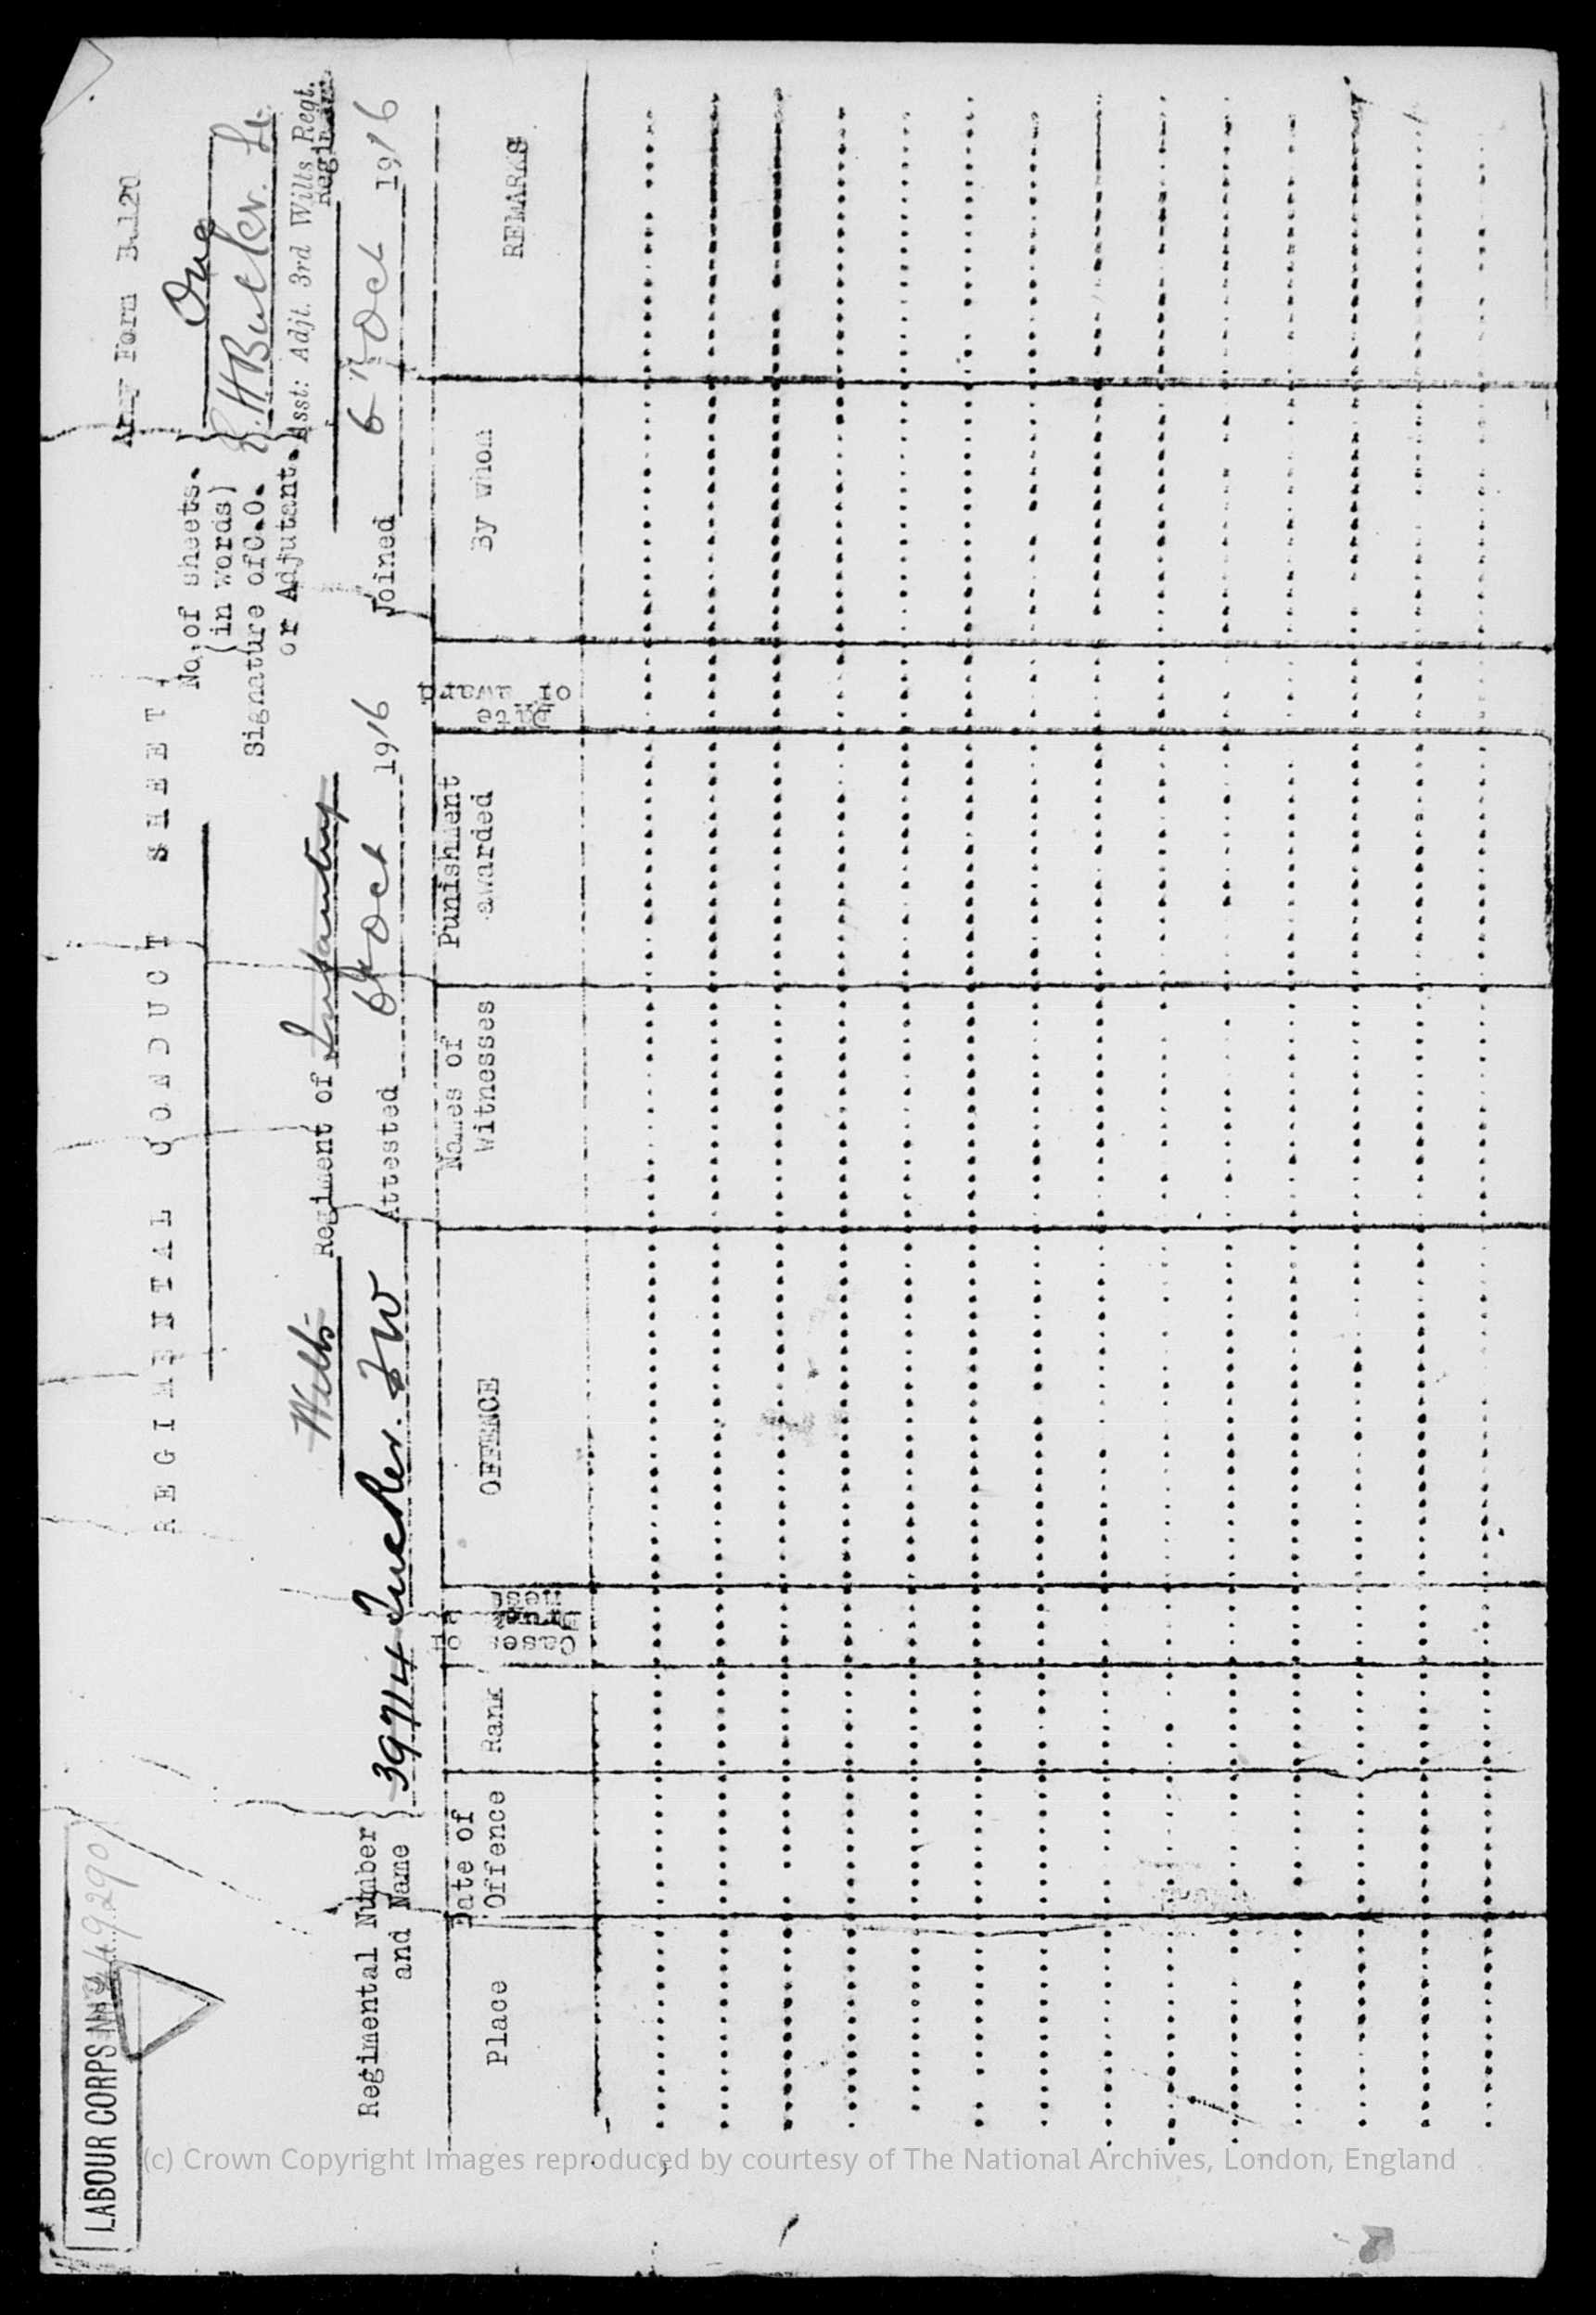 LABOUR CORPS
Army Form B.120
REGIMENTAL CONDUCT SHEET
No. of sheets. One
(in words)
Signature of C.O. Butler. Lt
or Adjutant. Asst: Adjt. 3rd Wilts Regt.
Wilts Regiment of Infantry
Regimental Number
and Name } 39714 Tucker. F W Attested 6 Oct 1916 Joined 6 Oct 1916
Place
Date of Offence
Rank
Cases of Drunkenness
OFFENCE
Names of Witnesses
Punishment awarded
Date of award
By whom
REMARKS
(c) Crown Copyright Images reproduced by courtesy of The National Archives, London, England